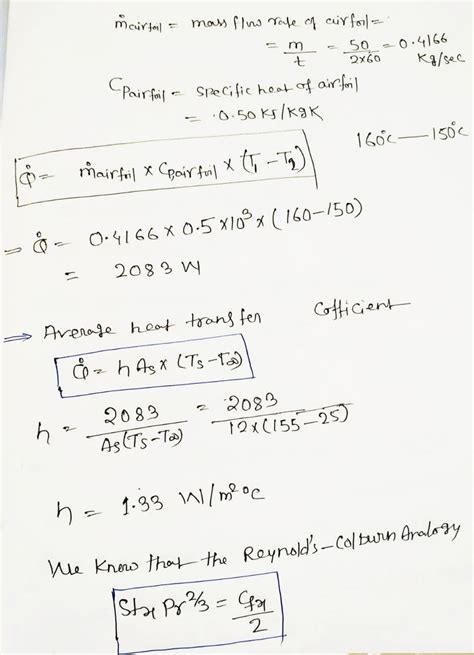 ṁairfoil = mass flow rate of airfoil =
= m/t = 50/2x60 = 0.4166 Kg/sec
CPairfoil = specific heat of airfoil
= 0.50 KJ/KgK
160°C — 150°C
Q̇ = ṁairfoil x Cpairfoil x (T1 - T2)
⇒ Q̇ = 0.4166 x 0.5 x 10³ x (160-150)
= 2083 W
⇒ Average heat transfer Cofficient
Q̇ = h As x (Ts - T∞)
h = 2083/As(Ts-T∞) = 2083/12x(155-25)
h = 1.33 W/m²°C
We Know that the Reynold's-Colburn Analogy
Stx Pr^2/3 = Cfx/2